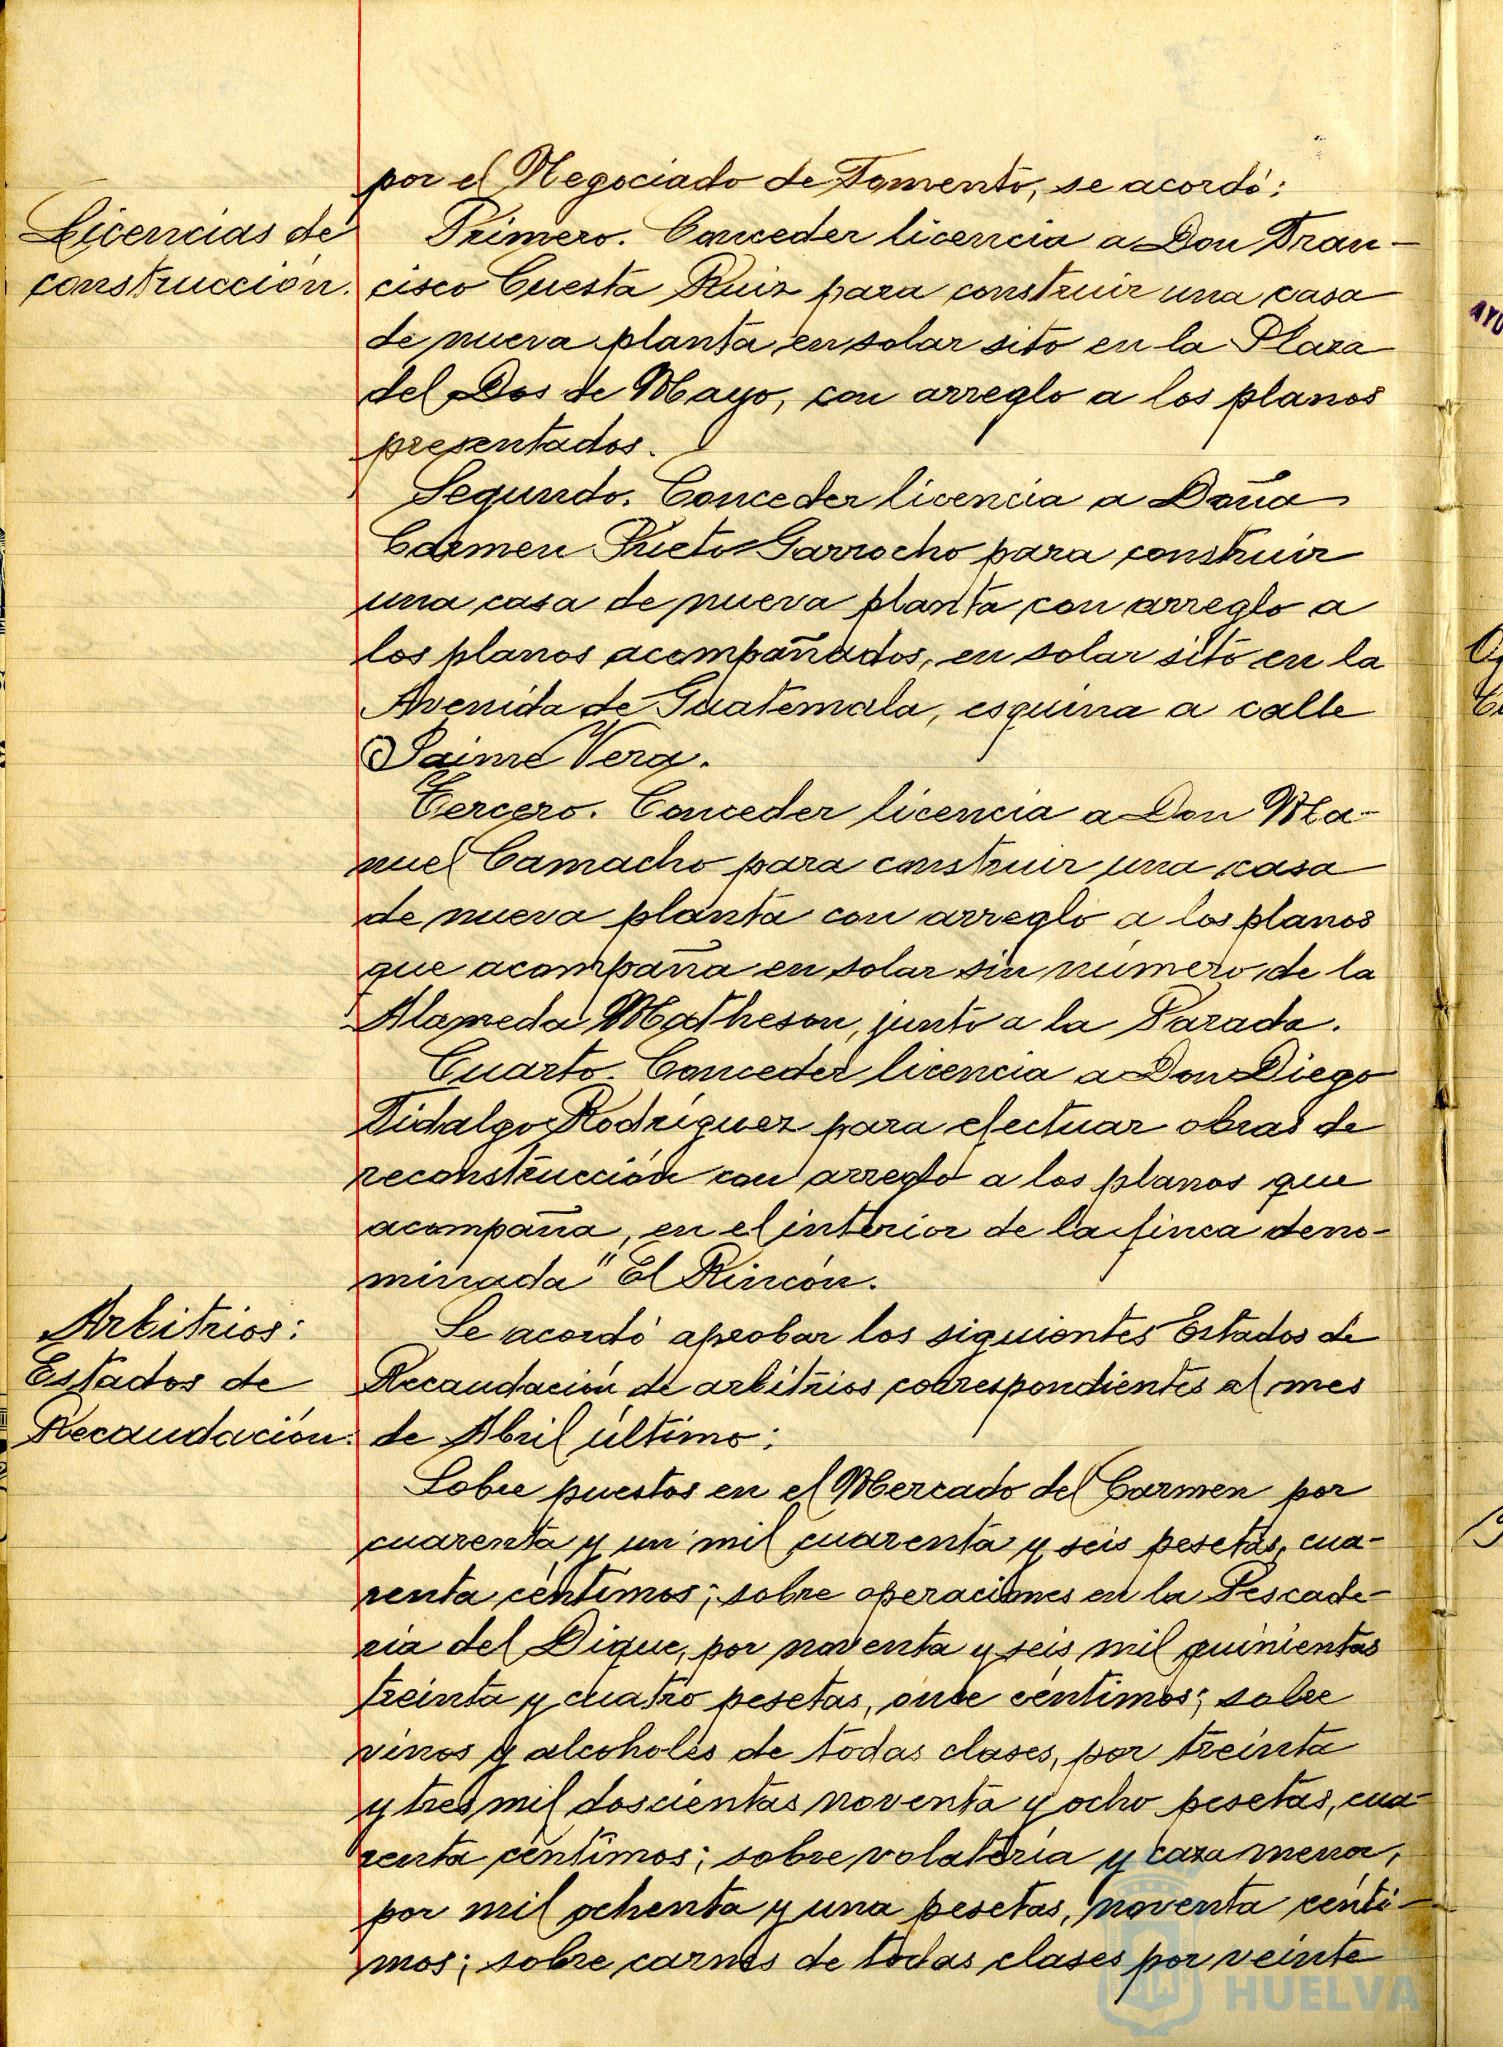 por el Negociado de Fomento, se acordó:
Licencias de
construcción.
Primero. Conceder licencia a Don Fran-
cisco Cuesta Ruiz para construir una casa
de nueva planta en solar sito en la Plaza
del Dos de Mayo, con arreglo a los planos
presentados.
Segundo. Conceder licencia a Doña
Carmen Prieto Garrocho para construir
una casa de nueva planta con arreglo a
los planos acompañados, en solar sito en la
Avenida de Guatemala, esquina a calle
Jaime Vera.
Tercero. Conceder licencia a Don Ma-
nuel Camacho para construir una casa
de nueva planta con arreglo a los planos
que acompaña en solar sin número de la
Alameda Matheson, junto a la Parada.
Cuarto. Conceder licencia a Don Diego
Fidalgo Rodríguez para efectuar obras de
reconstrucción con arreglo a los planos que
acompaña, en el interior de la finca deno-
minada "El Rincón.
Arbitrios:
Estados de
Recaudación.
Se acordó aprobar los siguientes Estados de
Recaudación de arbitrios correspondientes al mes
de Abril último:
Sobre puestos en el Mercado del Carmen por
cuarenta y un mil cuarenta y seis pesetas, cua-
renta céntimos; sobre operaciones en la Pescade-
ria del Dique, por noventa y seis mil quinientas
treinta y cuatro pesetas, once céntimos; sobre
vinos y alcoholes de todas clases, por treinta
y tres mil doscientas noventa y ocho pesetas, cua-
renta céntimos; sobre volatería y caza menor,
por mil ochenta y una pesetas, noventa cénti-
mos; sobre carnes de todas clases por veinte
HUELVA